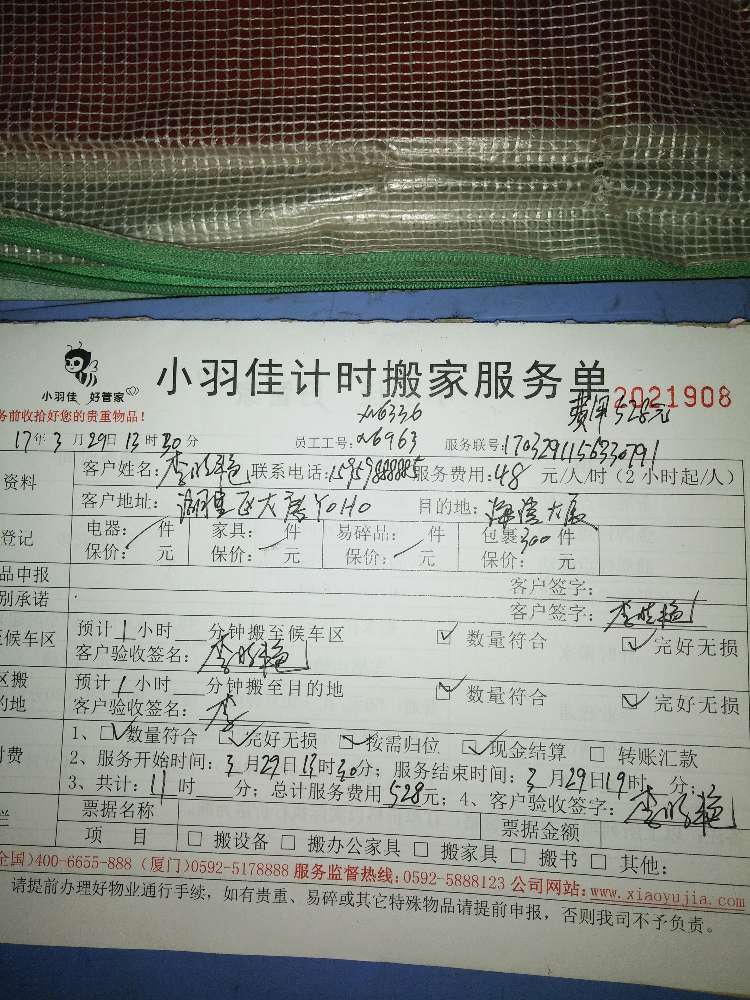 小羽佳 好管家
小羽佳计时搬家服务单 2021908
费用528元
务前收拾好您的贵重物品！
N6336
17年3月29日13时30分 员工工号：N6963 服务联号：
资料 客户姓名： 联系电话： 服务费用：48 元/人/时（2小时起/人）
客户地址：湖里区大唐YOHO 目的地：
登记 电器： 件 家具： 件 易碎品： 件 包裹300件
保价： 元 保价： 元 保价： 元 保价： 元
品申报 客户签字：
别承诺 客户签字：
候车区 预计1小时 分钟搬至候车区 数量符合 完好无损
客户验收签名：
区搬 预计1小时 分钟搬至目的地 数量符合 完好无损
的地 客户验收签名：李
付费 1、 数量符合 完好无损 按需归位 现金结算 转账汇款
2、服务开始时间：3月29日13时30分；服务结束时间：3月29日19时 分；
3、共计：11时 分；总计服务费用528元；4、客户验收签字：
栏 票据名称 票据金额
项 目 搬设备 搬办公家具 搬家具 搬书 其他：
全国）400-6655-888（厦门）0592-5178888 服务监督热线：0592-5888123 公司网站：www.xiaoyujia.com
请提前办理好物业通行手续，如有贵重、易碎或其它特殊物品请提前申报，否则我司不予负责。